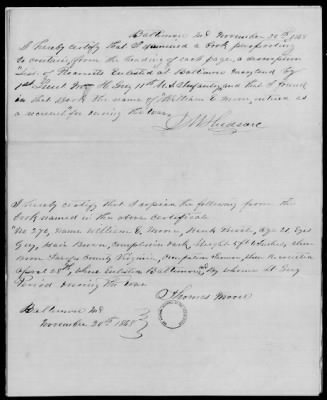 Baltimore Md November 20th 1868
I hereby certify that I examined a Book purporting
to contain, from the heading of each page, a descriptive
"List of Recruits Enlisted at Baltimore Maryland by
1st Lieut Wm H. Gray 11th U.S. Infantry, and that I found
in that Book the name of "William E Moore, entered as
a recruit" for during the war.
I hereby certify that I copied the following from the
Book named in the above certificate
"No 272, name William E. Moore, Rank Recruit, Age 21, Eyes
Grey, Hair Brown, complexion dark, Height 5ft
born Fairfax County Virginia, occupation Farmer, when
April 28th, where Enlisted Baltimore Md By whom Lt Gray
Period during the war
Thomas Moore
Baltimore Md
November 20th 1868